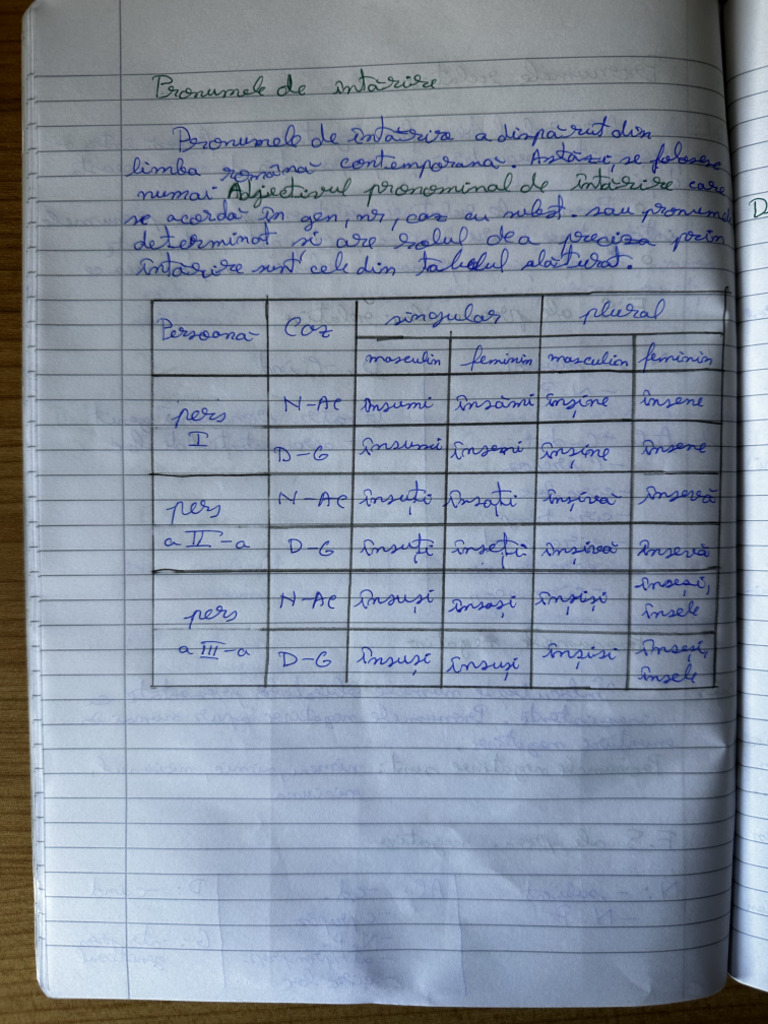 Pronumele de întărire
Pronumele de întărire a dispărut din
limba română contemporană. Astăzi, se folosesc
numai Adjectivul pronominal de întărire care
se acordă în gen, nr, caz cu subst. sau pronumel
determinat si are rolul de a preciza prin
întărire sunt cele din tabelul alăturat.
Persoana Caz singular plural
masculin feminin masculin feminin
pers I N-Ac însumi însămi înșine însene
D-G însumi însemi înșine însene
pers a II-a N-Ac însuți însați înșivă însevă
D-G însuți înseți înșivă însevă
pers a III-a N-Ac însuși însași înșiși înseși, însele
D-G însuși însuși înșisi înseși, însele
D